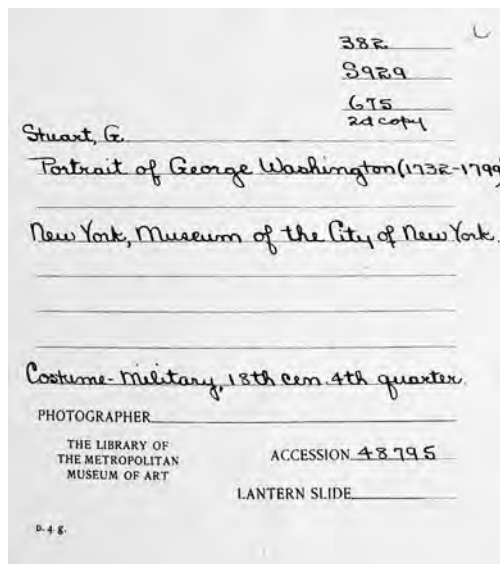 382
S929
675
2d copy
Stuart, G.
Portrait of George Washington (1732-1799)
New York, Museum of the City of New York.
Costume-Military, 18th cen. 4th quarter.
PHOTOGRAPHER
THE LIBRARY OF
THE METROPOLITAN
MUSEUM OF ART
ACCESSION 48795
LANTERN SLIDE
D. 4 g.